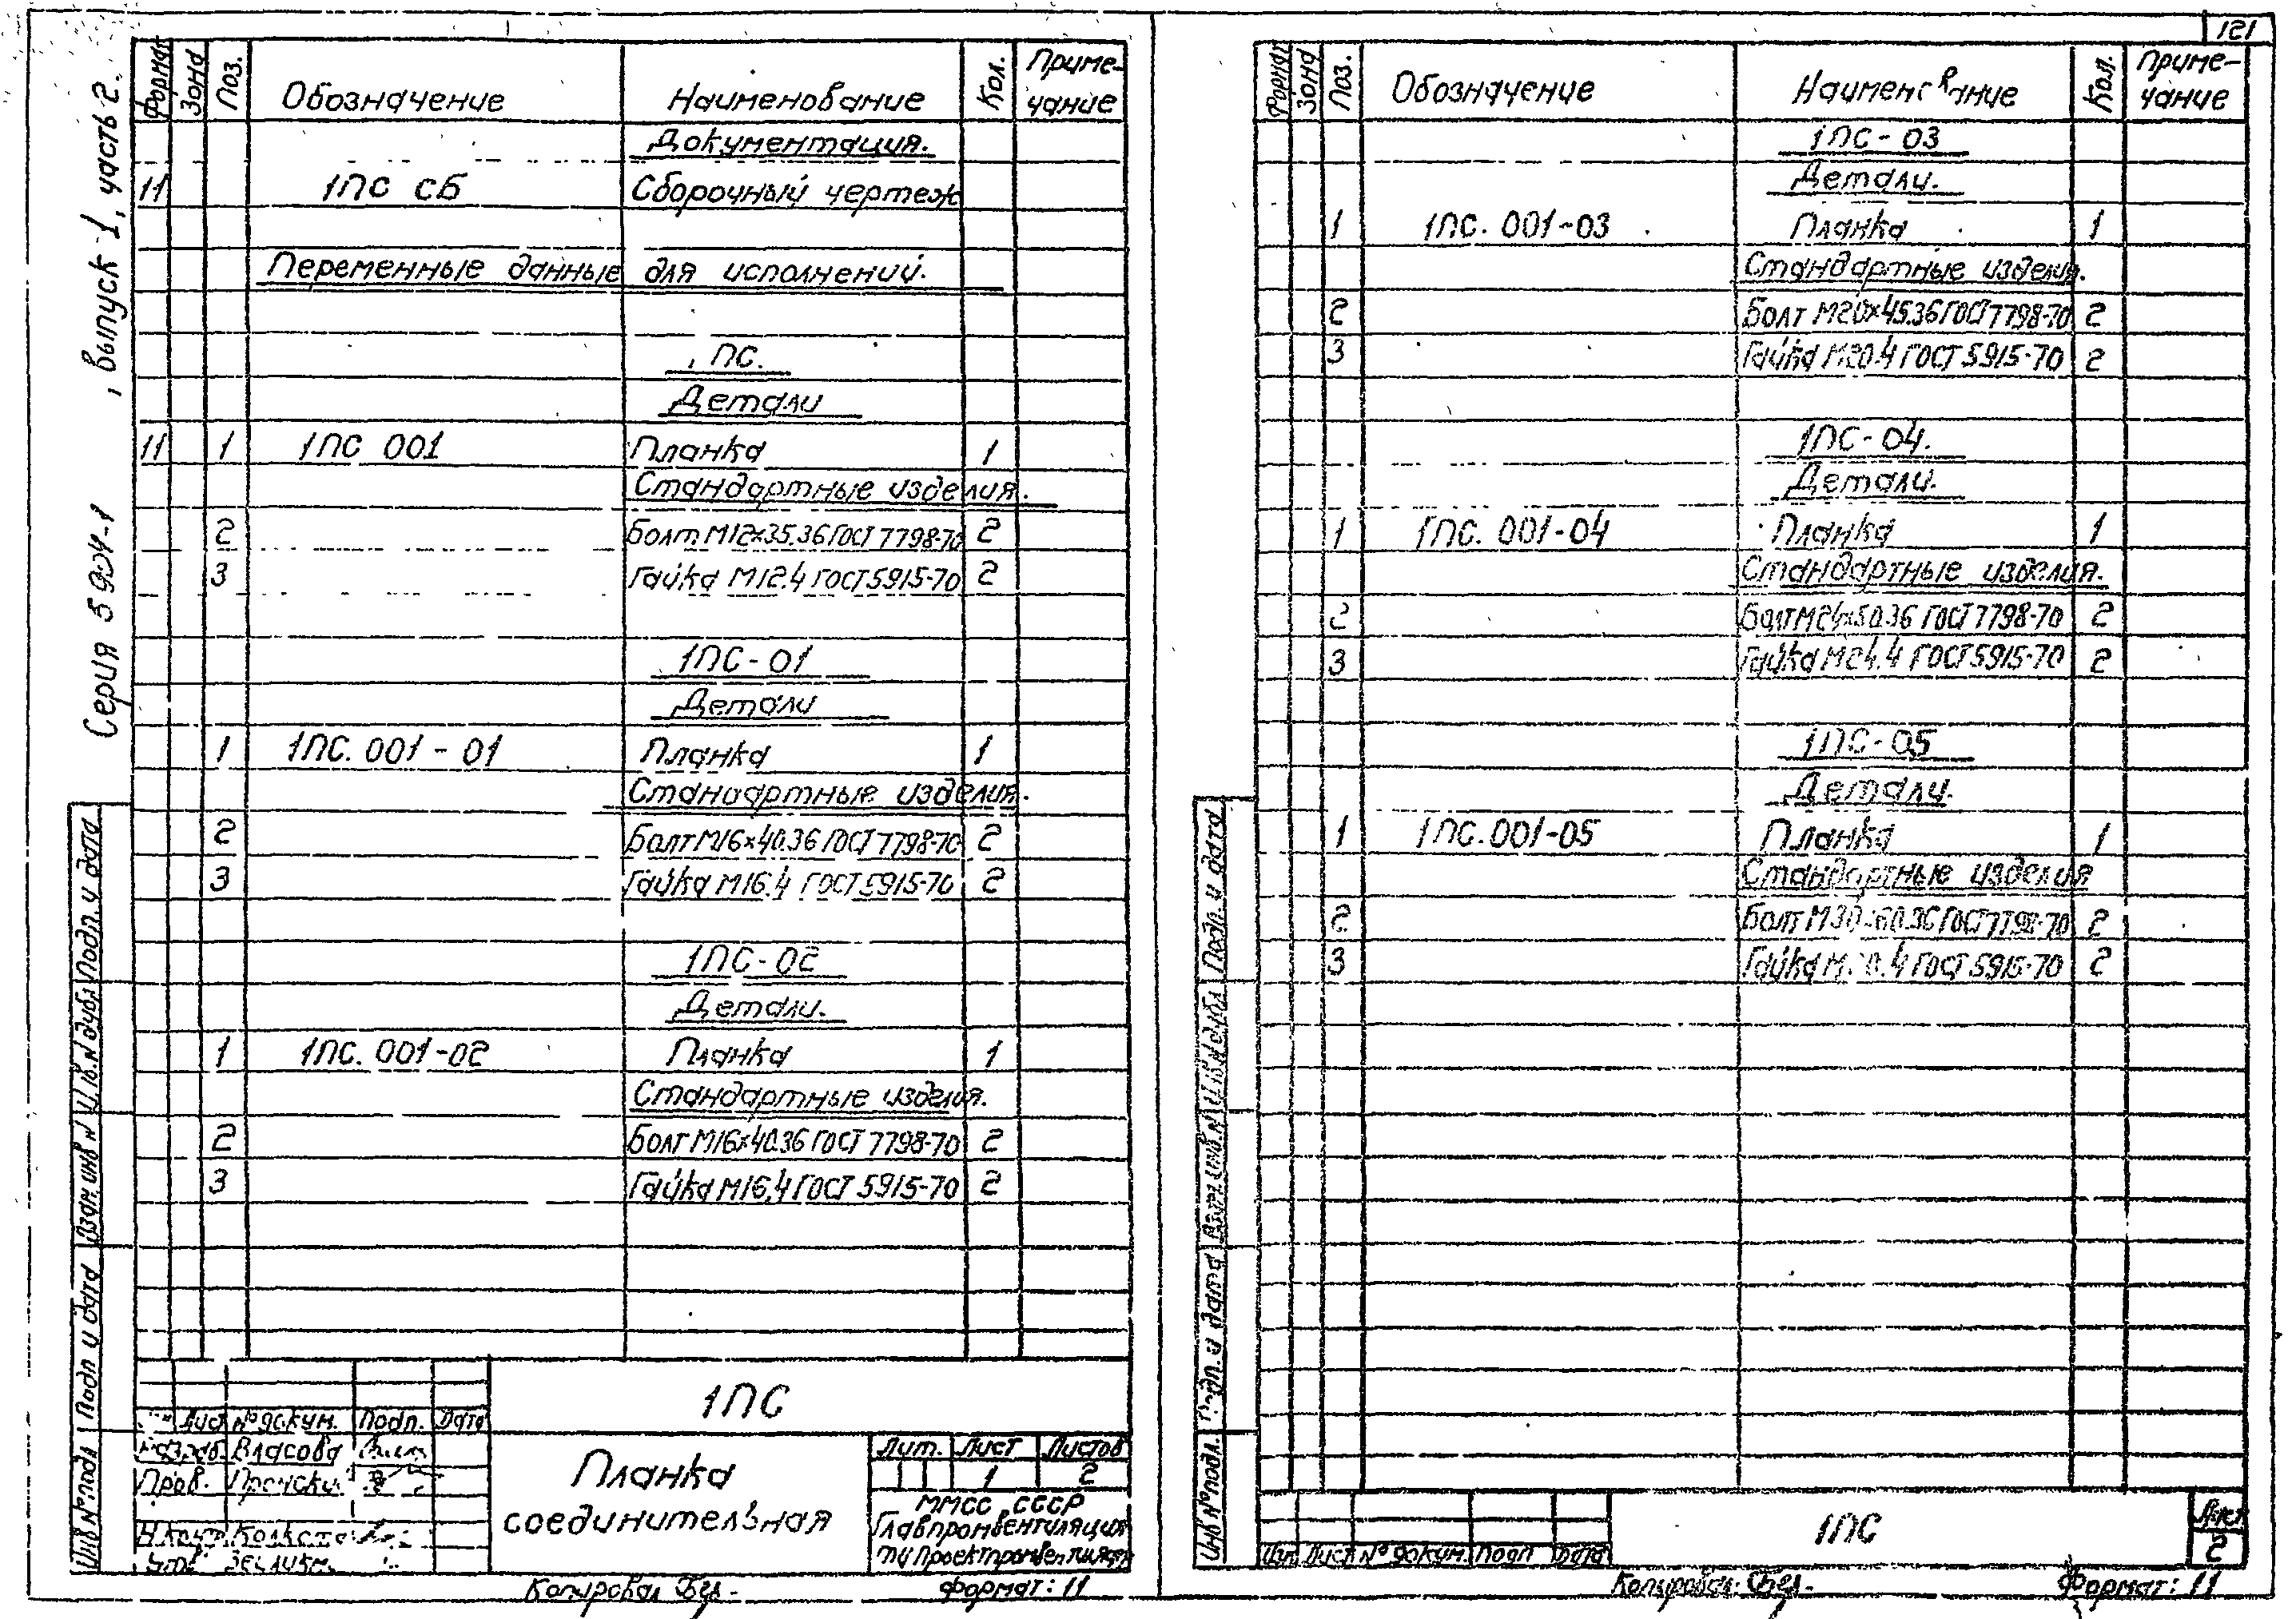 121
Серия 5.904-1 , выпуск 1, часть 2.
Формат Зона Поз. Обозначение Наименование Кол. Приме-
чание
Документация.
11 1ПС СБ Сборочный чертеж
Переменные данные для исполнений.
1ПС.
Детали
11 1 1ПС 001 Планка 1
Стандартные изделия.
2 Болт М12×35.36 ГОСТ 7798-70 2
3 Гайка М12.4 ГОСТ 5915-70 2
1ПС-01
Детали
1 1ПС.001-01 Планка 1
Стандартные изделия.
2 Болт М16×40.36 ГОСТ 7798-70 2
3 Гайка М16.4 ГОСТ 5915-70 2
1ПС-02
Детали.
1 1ПС.001-02 Планка 1
Стандартные изделия.
2 Болт М16×40.36 ГОСТ 7798-70 2
3 Гайка М16.4 ГОСТ 5915-70 2
Подп. и дата
Инв.№дубл
Взам.инв №
Подп и дата
Инв №подл
1ПС
Лист №докум. Подп. Дата
Разраб. Власова
Пров.
Н.контр
Утв.
Планка
соединительная
Лит. Лист Листов
1 2
ММСС СССР
Главпромвентиляция
ГПИ Проектпромвентиляция
Копировал Формат: 11
Формат Зона Поз. Обозначение Наименование Кол. Приме-
чание
1ПС-03
Детали.
1 1ПС.001-03 Планка 1
Стандартные изделия.
2 Болт М20×45.36 ГОСТ 7798-70 2
3 Гайка М20.4 ГОСТ 5915-70 2
1ПС-04.
Детали.
1 1ПС.001-04 Планка 1
Стандартные изделия.
2 Болт М24×50.36 ГОСТ 7798-70 2
3 Гайка М24.4 ГОСТ 5915-70 2
1ПС-05
Детали.
1 1ПС.001-05 Планка 1
Стандартные изделия
2 Болт М30×60.36 ГОСТ 7798-70 2
3 Гайка М30.4 ГОСТ 5915-70 2
Подп. и дата
Инв.№дубл
Взам.инв.№
Подп. и дата
Инв №подл.
Изм Лист №докум. Подп Дата
1ПС
Лист
2
Копировал: Формат: 11